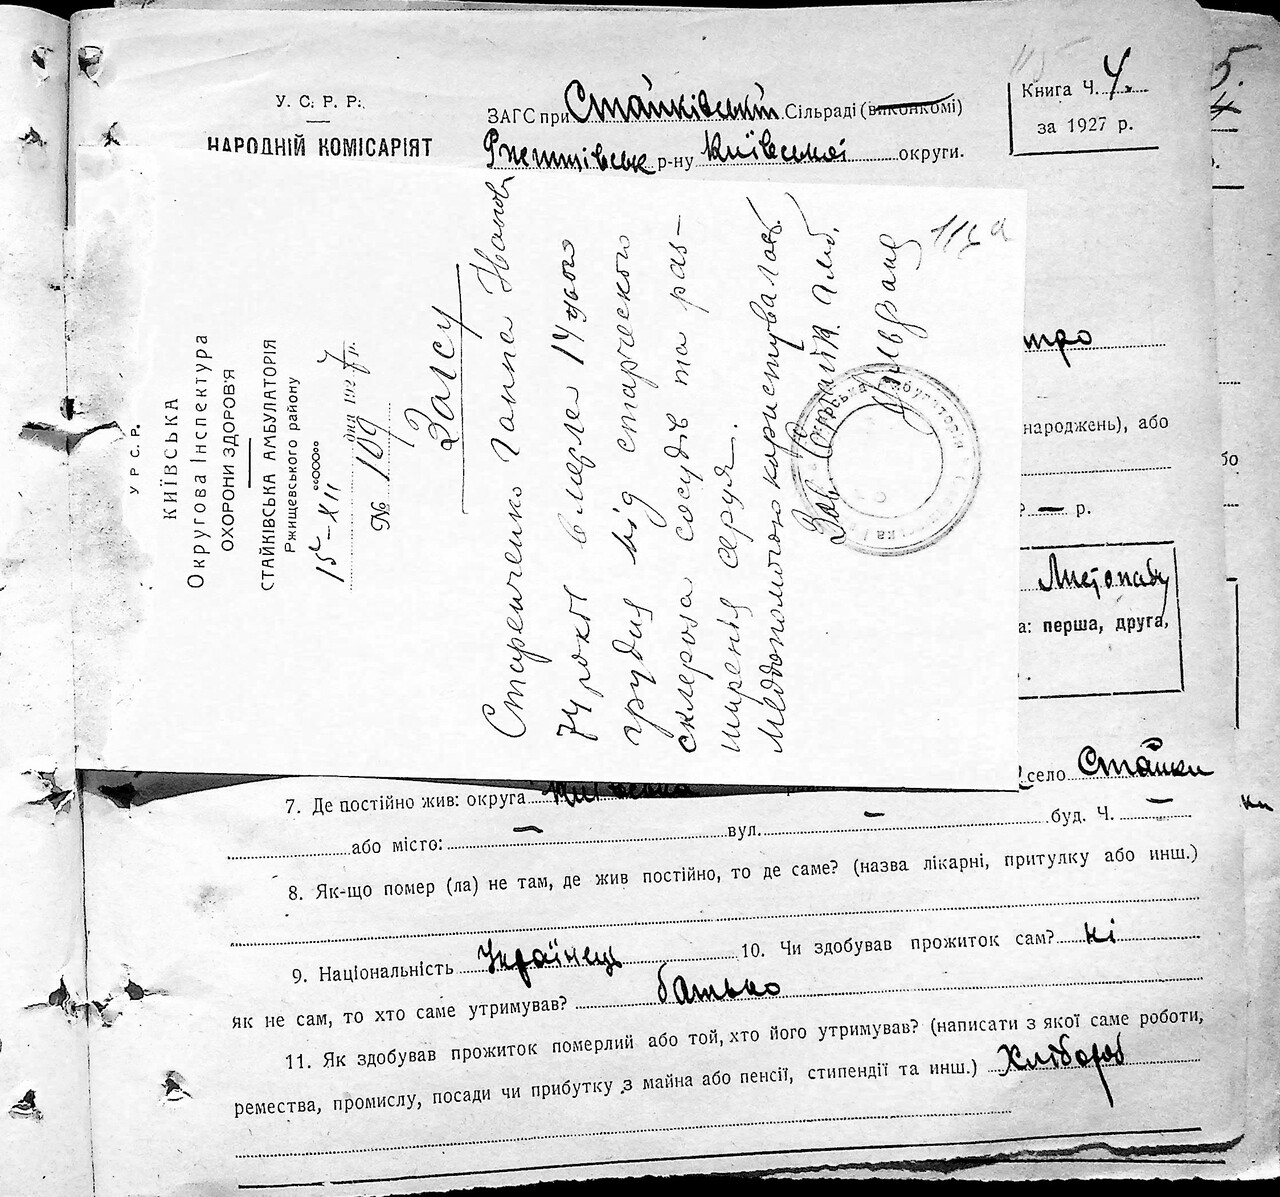 115
У. С. Р. Р.
НАРОДНІЙ КОМІСАРІЯТ
ЗАГС при Стайківській Сільраді (виконкомі)
Ржищівськ р-ну Київської округи.
Книга Ч. 4
за 1927 р.
5.
У Р С Р.
КИЇВСЬКА
Округова Інспектура
ОХОРОНИ ЗДОРОВ'Я
СТАЙКІВСЬКА АМБУЛАТОРІЯ
Ржищевського району
15-XII
дня 1927 р.
№ 109
Загсу
Старченко Ганна Іванов
74 роки вмерла 14 цього
грудня від старческого
склероза сосудів та раз-
ширення серця.
Медпомогою користувалась.
Зав. Стайк. амб.
116 а
тро
народжень), або
? — р.
Листопаду
а: перша, друга,
бо
село Стайки
7. Де постійно жив: округа Київська
або місто: — вул. — буд. Ч. —
8. Як-що помер (ла) не там, де жив постійно, то де саме? (назва лікарні, притулку або инш.)
9. Національність Українець 10. Чи здобував прожиток сам? ні
як не сам, то хто саме утримував? батько
11. Як здобував прожиток померлий або той, хто його утримував? (написати з якої саме роботи,
ремества, промислу, посади чи прибутку з майна або пенсії, стипендії та инш.) Хлібороб